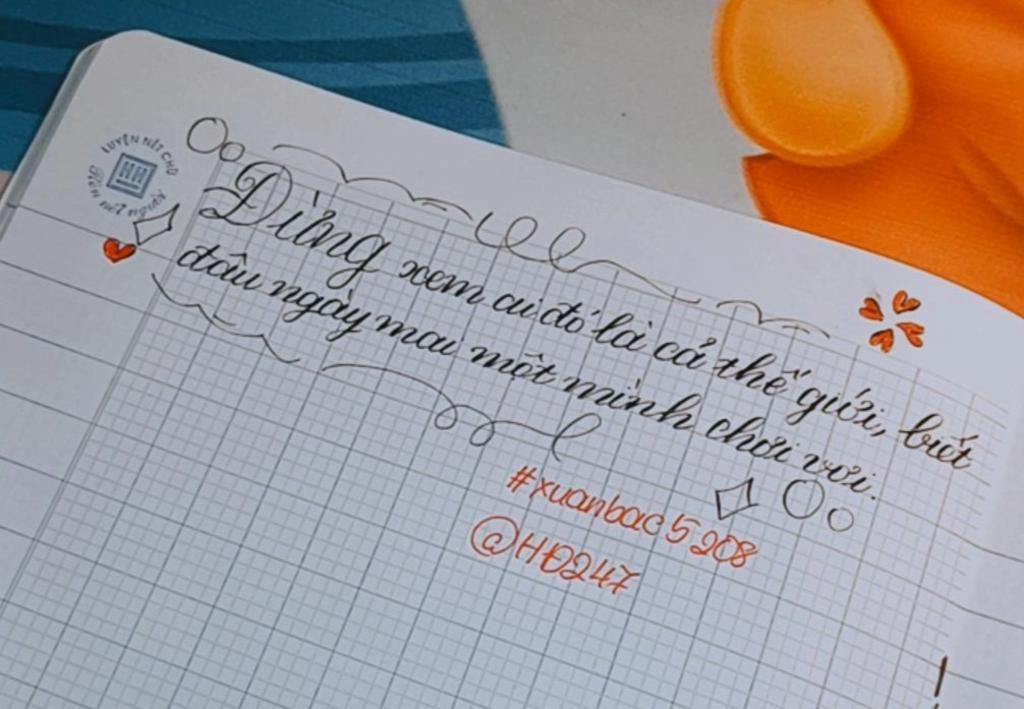 LUYỆN NÉT CHỮ
RÈN NẾT NGƯỜI
HH
Đừng xem ai đó là cả thế giới, biết
đâu ngày mai một mình chơi vơi.
#xuanbac5208
@HĐ247